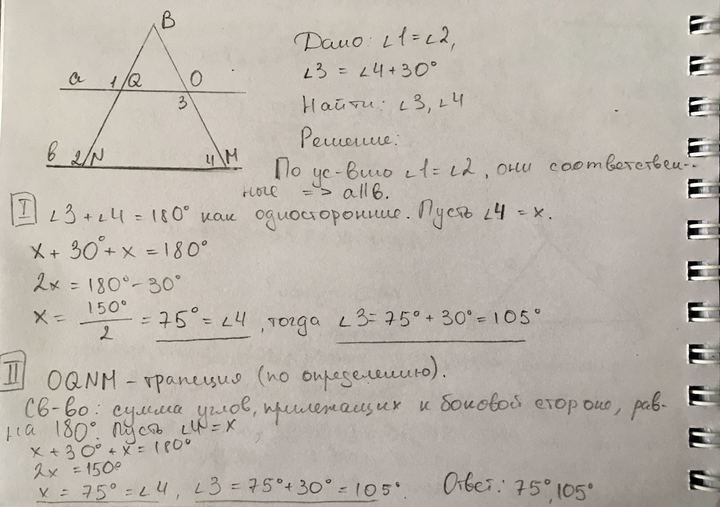 B
a 1 Q O
3
в 2 N 4 M
Дано: ∠1=∠2,
∠3 = ∠4+30°
Найти: ∠3, ∠4
Решение:
По ус-вию ∠1=∠2, они соответствен-
ные => a||в.
I ∠3+∠4=180° как односторонние. Пусть ∠4=x.
x+30°+x=180°
2x=180°-30°
x= 150°/2 =75°=∠4, тогда ∠3=75°+30°=105°
II OQNM-трапеция (по определению).
Св-во: сумма углов, прилежащих к боковой стороне, рав-
на 180°. Пусть ∠4=x,
x+30°+x=180°
2x=150°
x=75°=∠4, ∠3=75°+30°=105°. Ответ: 75°,105°